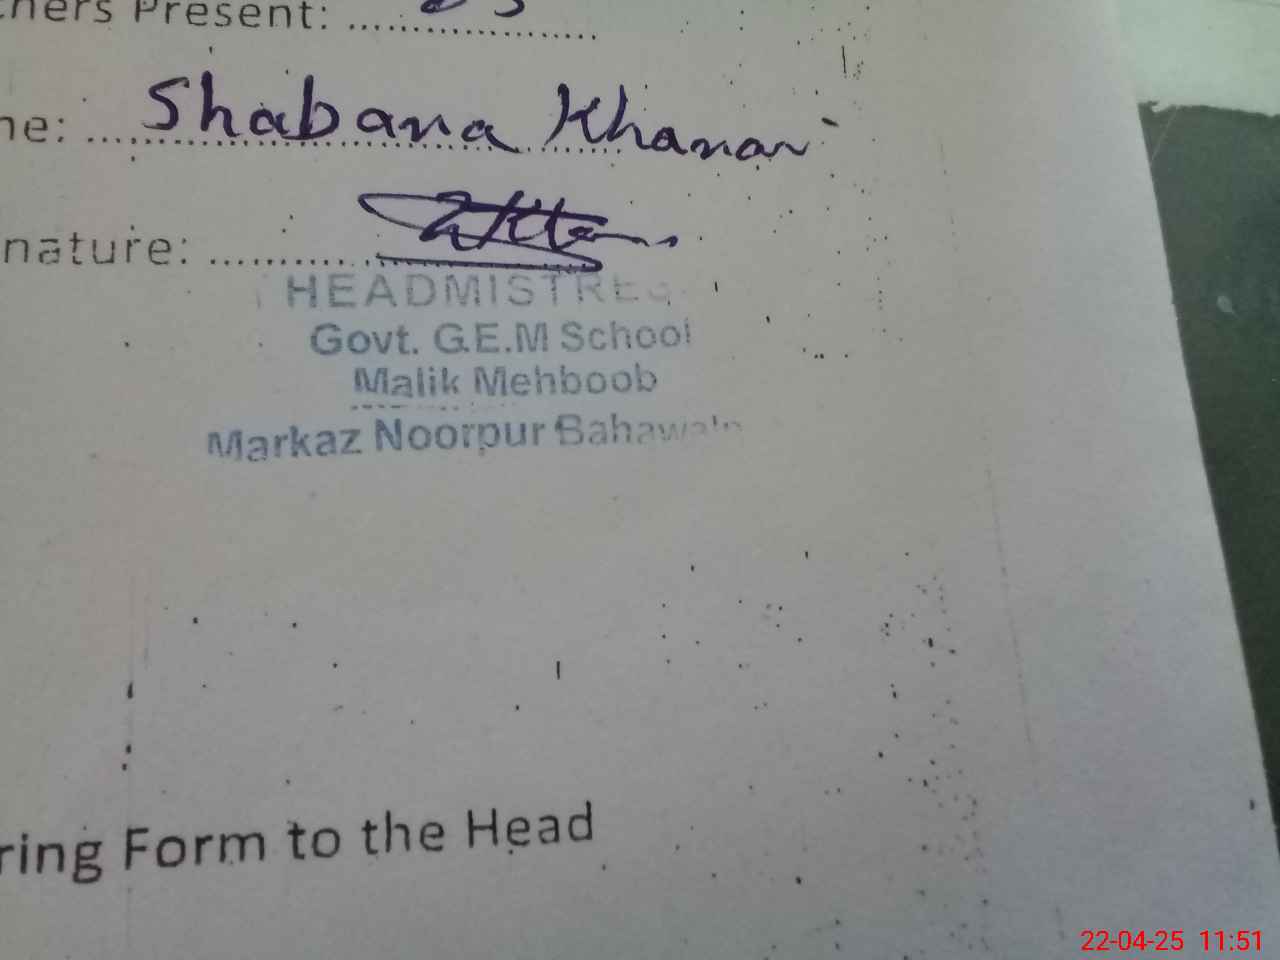 chers Present: 03
ne: Shabana Khanan
nature:
HEADMISTRES
Govt. G.E.M School
Malik Mehboob
Markaz Noorpur Bahawalp
ring Form to the Head
22-04-25 11:51